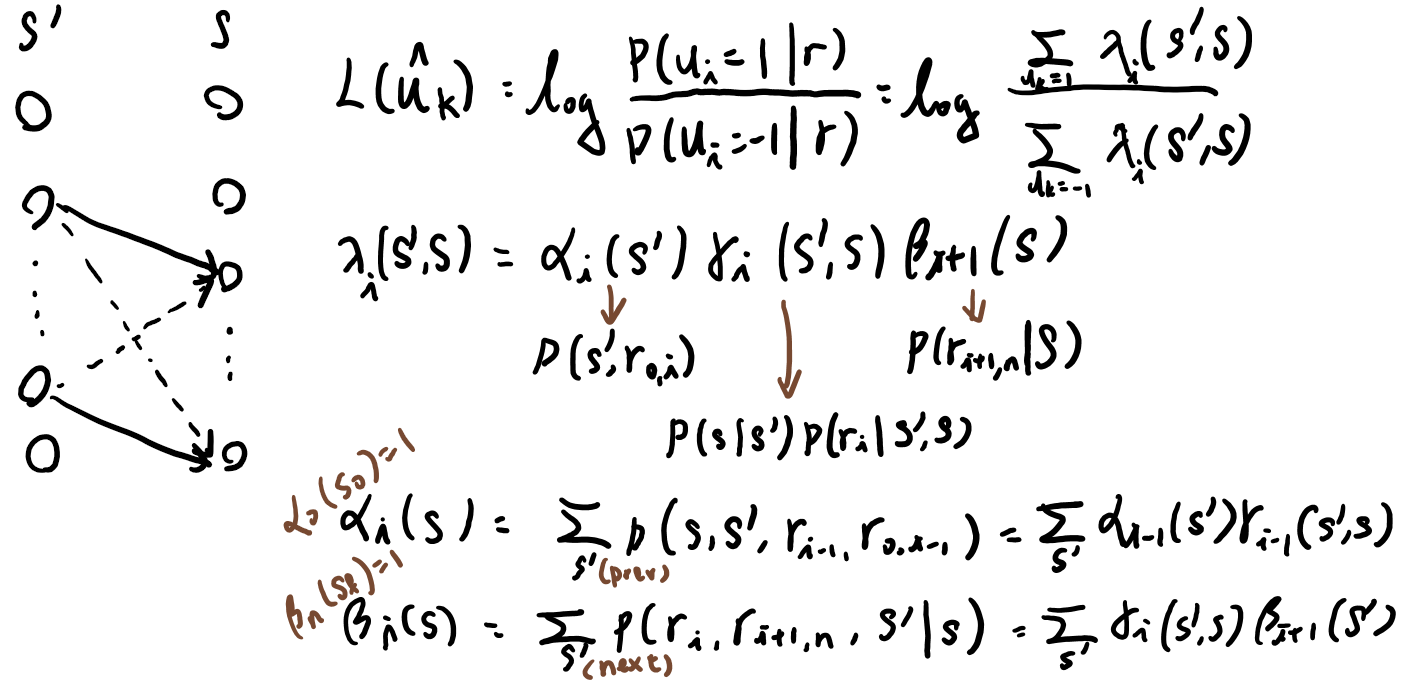 S' S
L(û_k) = log P(u_i=1|r) / P(u_i=-1|r) = log Σ_{u_k=1} λ_i(s',s) / Σ_{u_k=-1} λ_i(s',s)
λ_i(s',s) = α_i(s') γ_i(s',s) β_{i+1}(s)
P(s',r_{0,i}) P(r_{i+1,n}|S)
P(s|s')P(r_i|s',s)
α_0(s_0)=1
α_i(s) = Σ_{s'(prev)} P(s,s',r_{i-1},r_{0,i-1}) = Σ_{s'} α_{i-1}(s')γ_{i-1}(s',s)
β_i(s) = Σ_{s'(next)} P(r_i,r_{i+1,n},s'|s) = Σ_{s'} γ_i(s',s)β_{i+1}(s')